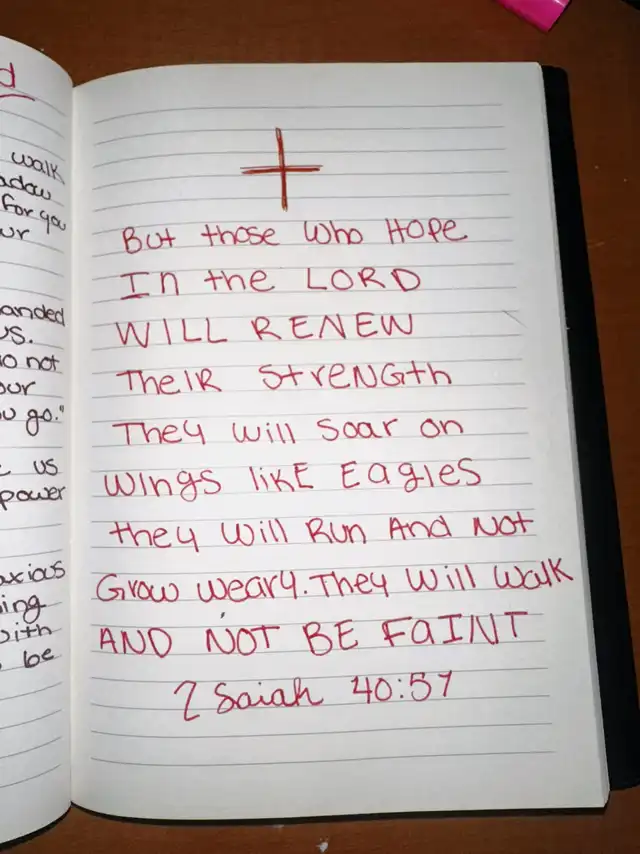 d
walk
adow
for you
ur
anded
us.
do not
our
ou go."
us
power
axious
ing
with
be
But those who HOPE
In the LORD
WILL RENEW
TheIR StReNGth
They will Soar on
Wings likE EaglES
they will Run And Not
Grow weary. They will walk
AND NOT BE FaINT
ISaiah 40:57